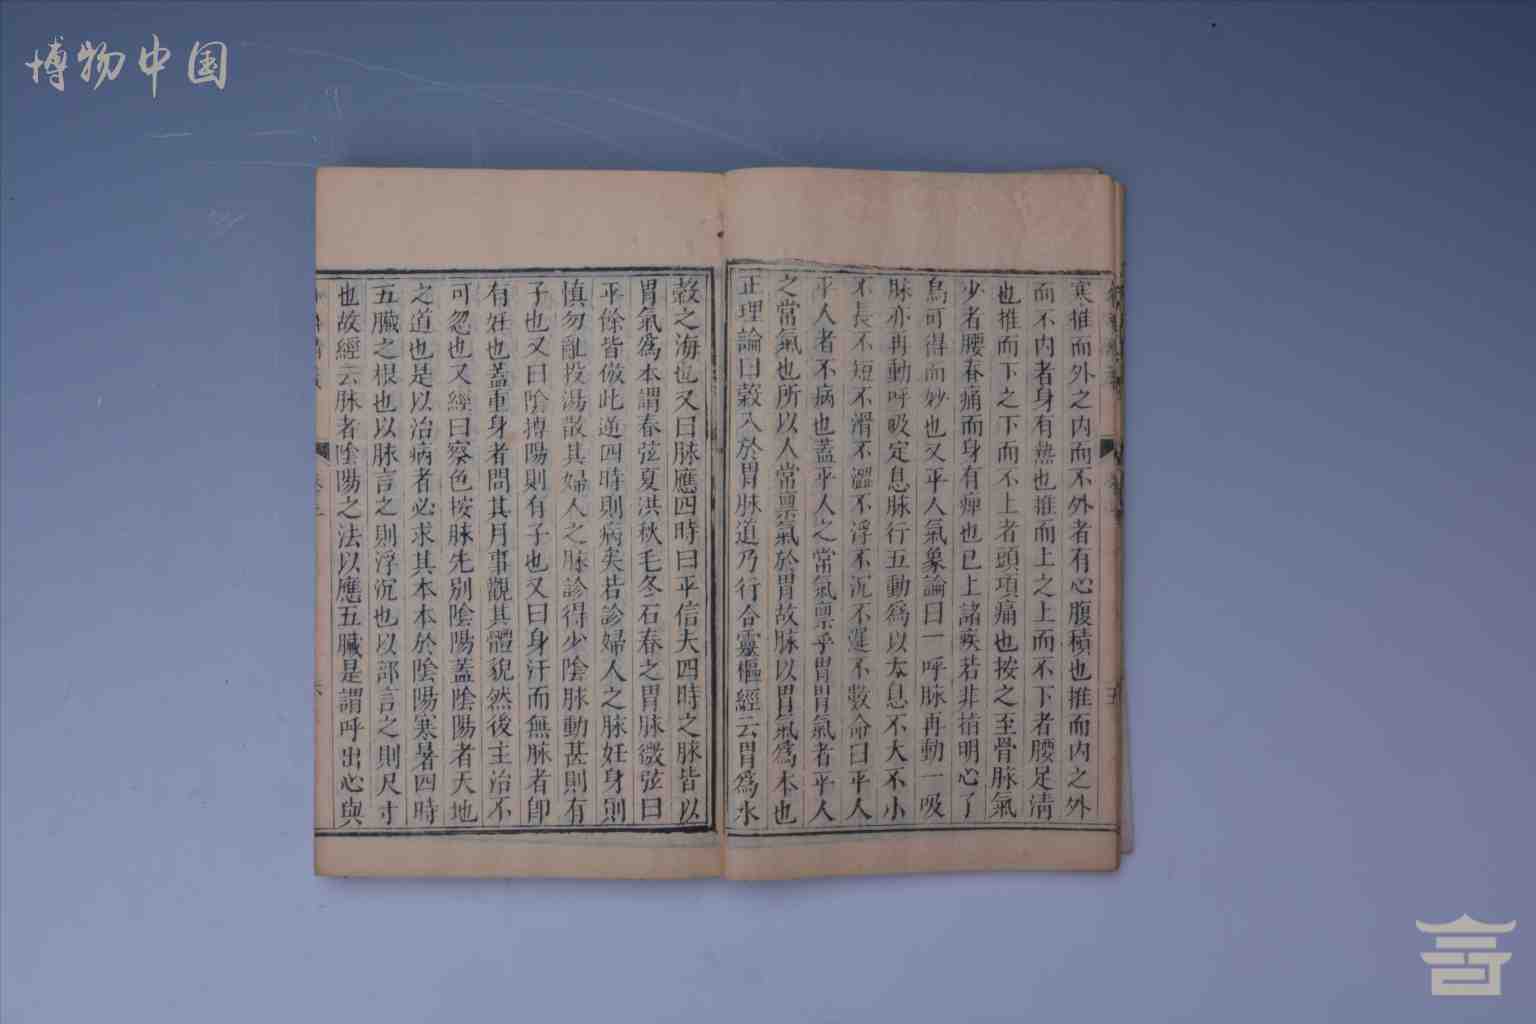 博物中国
寒推而外之内而不外者有心腹積也推而内之外
而不内者身有熱也推而上之上而不下者腰足清
也推而下之下而不上者頭項痛也按之至骨脉氣
少者腰脊痛而身有痺也已上諸疾若非指明心了
烏可得而妙也又平人氣象論曰一呼脉再動一吸
脉亦再動呼吸定息脉行五動爲以太息不大不小
不長不短不滑不澀不浮不沉不遲不數命曰平人
平人者不病也蓋平人之常氣禀乎胃胃氣者平人
之常氣也所以人常禀氣於胃故脉以胃氣爲本也
正理論曰穀入於胃脉道乃行合靈樞經云胃爲水
穀之海也又曰脉應四時曰平信夫四時之脉皆以
胃氣爲本謂春弦夏洪秋毛冬石春之胃脉微弦曰
平餘皆倣此逆四時則病矣若診婦人之脉妊身則
慎勿亂投湯散其婦人之脉診得少陰脉動甚則有
子也又曰陰搏陽則有子也又曰身汗而無脉者即
有妊也蓋重身者問其月事觀其體貌然後主治不
可忽也又經曰察色按脉先別陰陽蓋陰陽者天地
之道也是以治病者必求其本本於陰陽寒暑四時
五臟之根也以脉言之則浮沉也以部言之則尺寸
也故經云脉者陰陽之法以應五臟是謂呼出心與